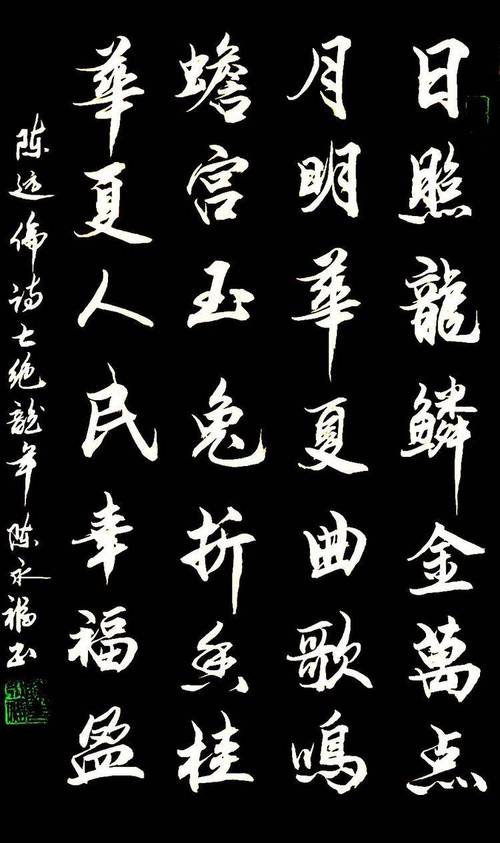 日照龍鱗金萬点
月明華夏曲歌鳴
蟾宮玉兔折香桂
華夏人民幸福盈
陈运倫诗七绝龍年 陈永福书